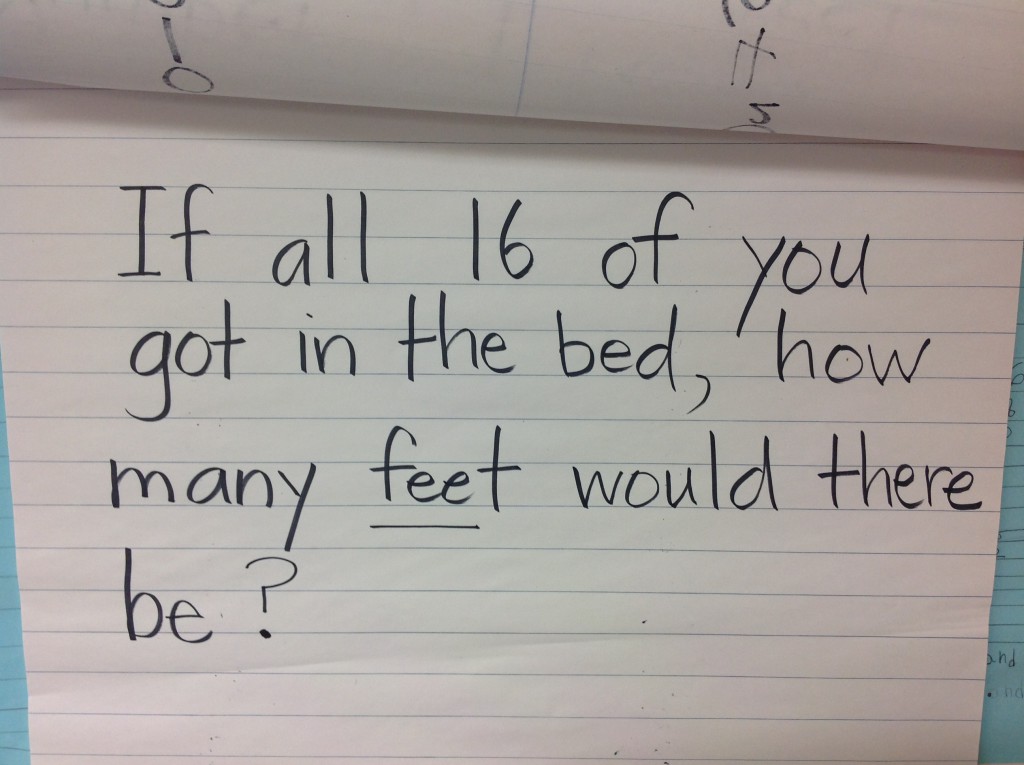 If all 16 of you
got in the bed, how
many feet would there
be?
and